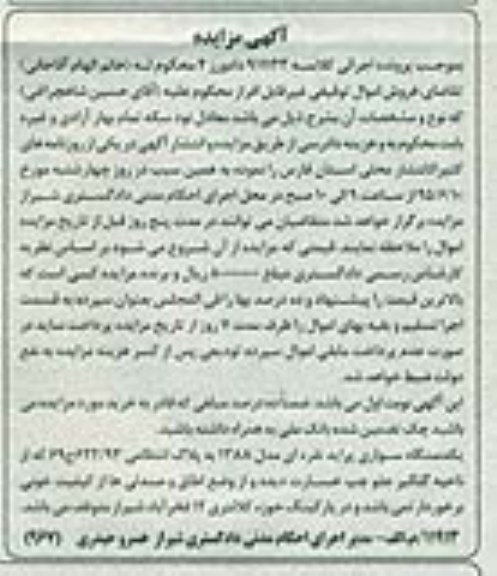 آگهی مزایده
بموجب پرونده اجرائی کلاسه دادورز ۴ محکوم له (خانم الهام آقاجانی)
تقاضای فروش اموال توقیفی غیرقابل افراز محکوم علیه (آقای حسین شاهچراغی)
که نوع و مشخصات آن بشرح ذیل می باشد معادل نود سکه تمام بهار آزادی و غیره
بابت محکوم به و هزینه دادرسی از طریق مزایده و انتشار آگهی در یکی از روزنامه های
کثیرالانتشار محلی استان فارس را نموده به همین سبب در روز چهارشنبه مورخ
از ساعت ۹ الی ۱۰ صبح در محل اجرای احکام مدنی دادگستری شیراز
مزایده برگزار خواهد شد متقاضیان می توانند در مدت پنج روز قبل از تاریخ مزایده
اموال را ملاحظه نمایند. قیمتی که مزایده از آن شروع می شود بر اساس نظریه
کارشناس رسمی دادگستری مبلغ ریال و برنده مزایده کسی است که
بالاترین قیمت را پیشنهاد و ده درصد بها را فی المجلس بعنوان سپرده به قسمت
اجرا تسلیم و بقیه بهای اموال را ظرف مدت روز از تاریخ مزایده پرداخت نماید در
صورت عدم پرداخت مابقی اموال سپرده تودیعی پس از کسر هزینه مزایده به نفع
دولت ضبط خواهد شد.
این آگهی نوبت اول می باشد. ضمناً ده درصد مبلغی که قادر به خرید مورد مزایده می
باشید چک تضمین شده بانک ملی به همراه داشته باشید.
یکدستگاه سواری پراید نقره ای مدل ۱۳۸۸ به پلاک انتظامی که از
ناحیه گلگیر جلو چپ خسارت دیده و از وضع اطاق و صندلی ها از کیفیت خوبی
برخوردار نمی باشد و در پارکینگ حوزه کلانتری ۱۲ فخرآباد شیراز متوقف می باشد.
م‌الف- مدیر اجرای احکام مدنی دادگستری شیراز خسرو حیدری (۹۶۷)